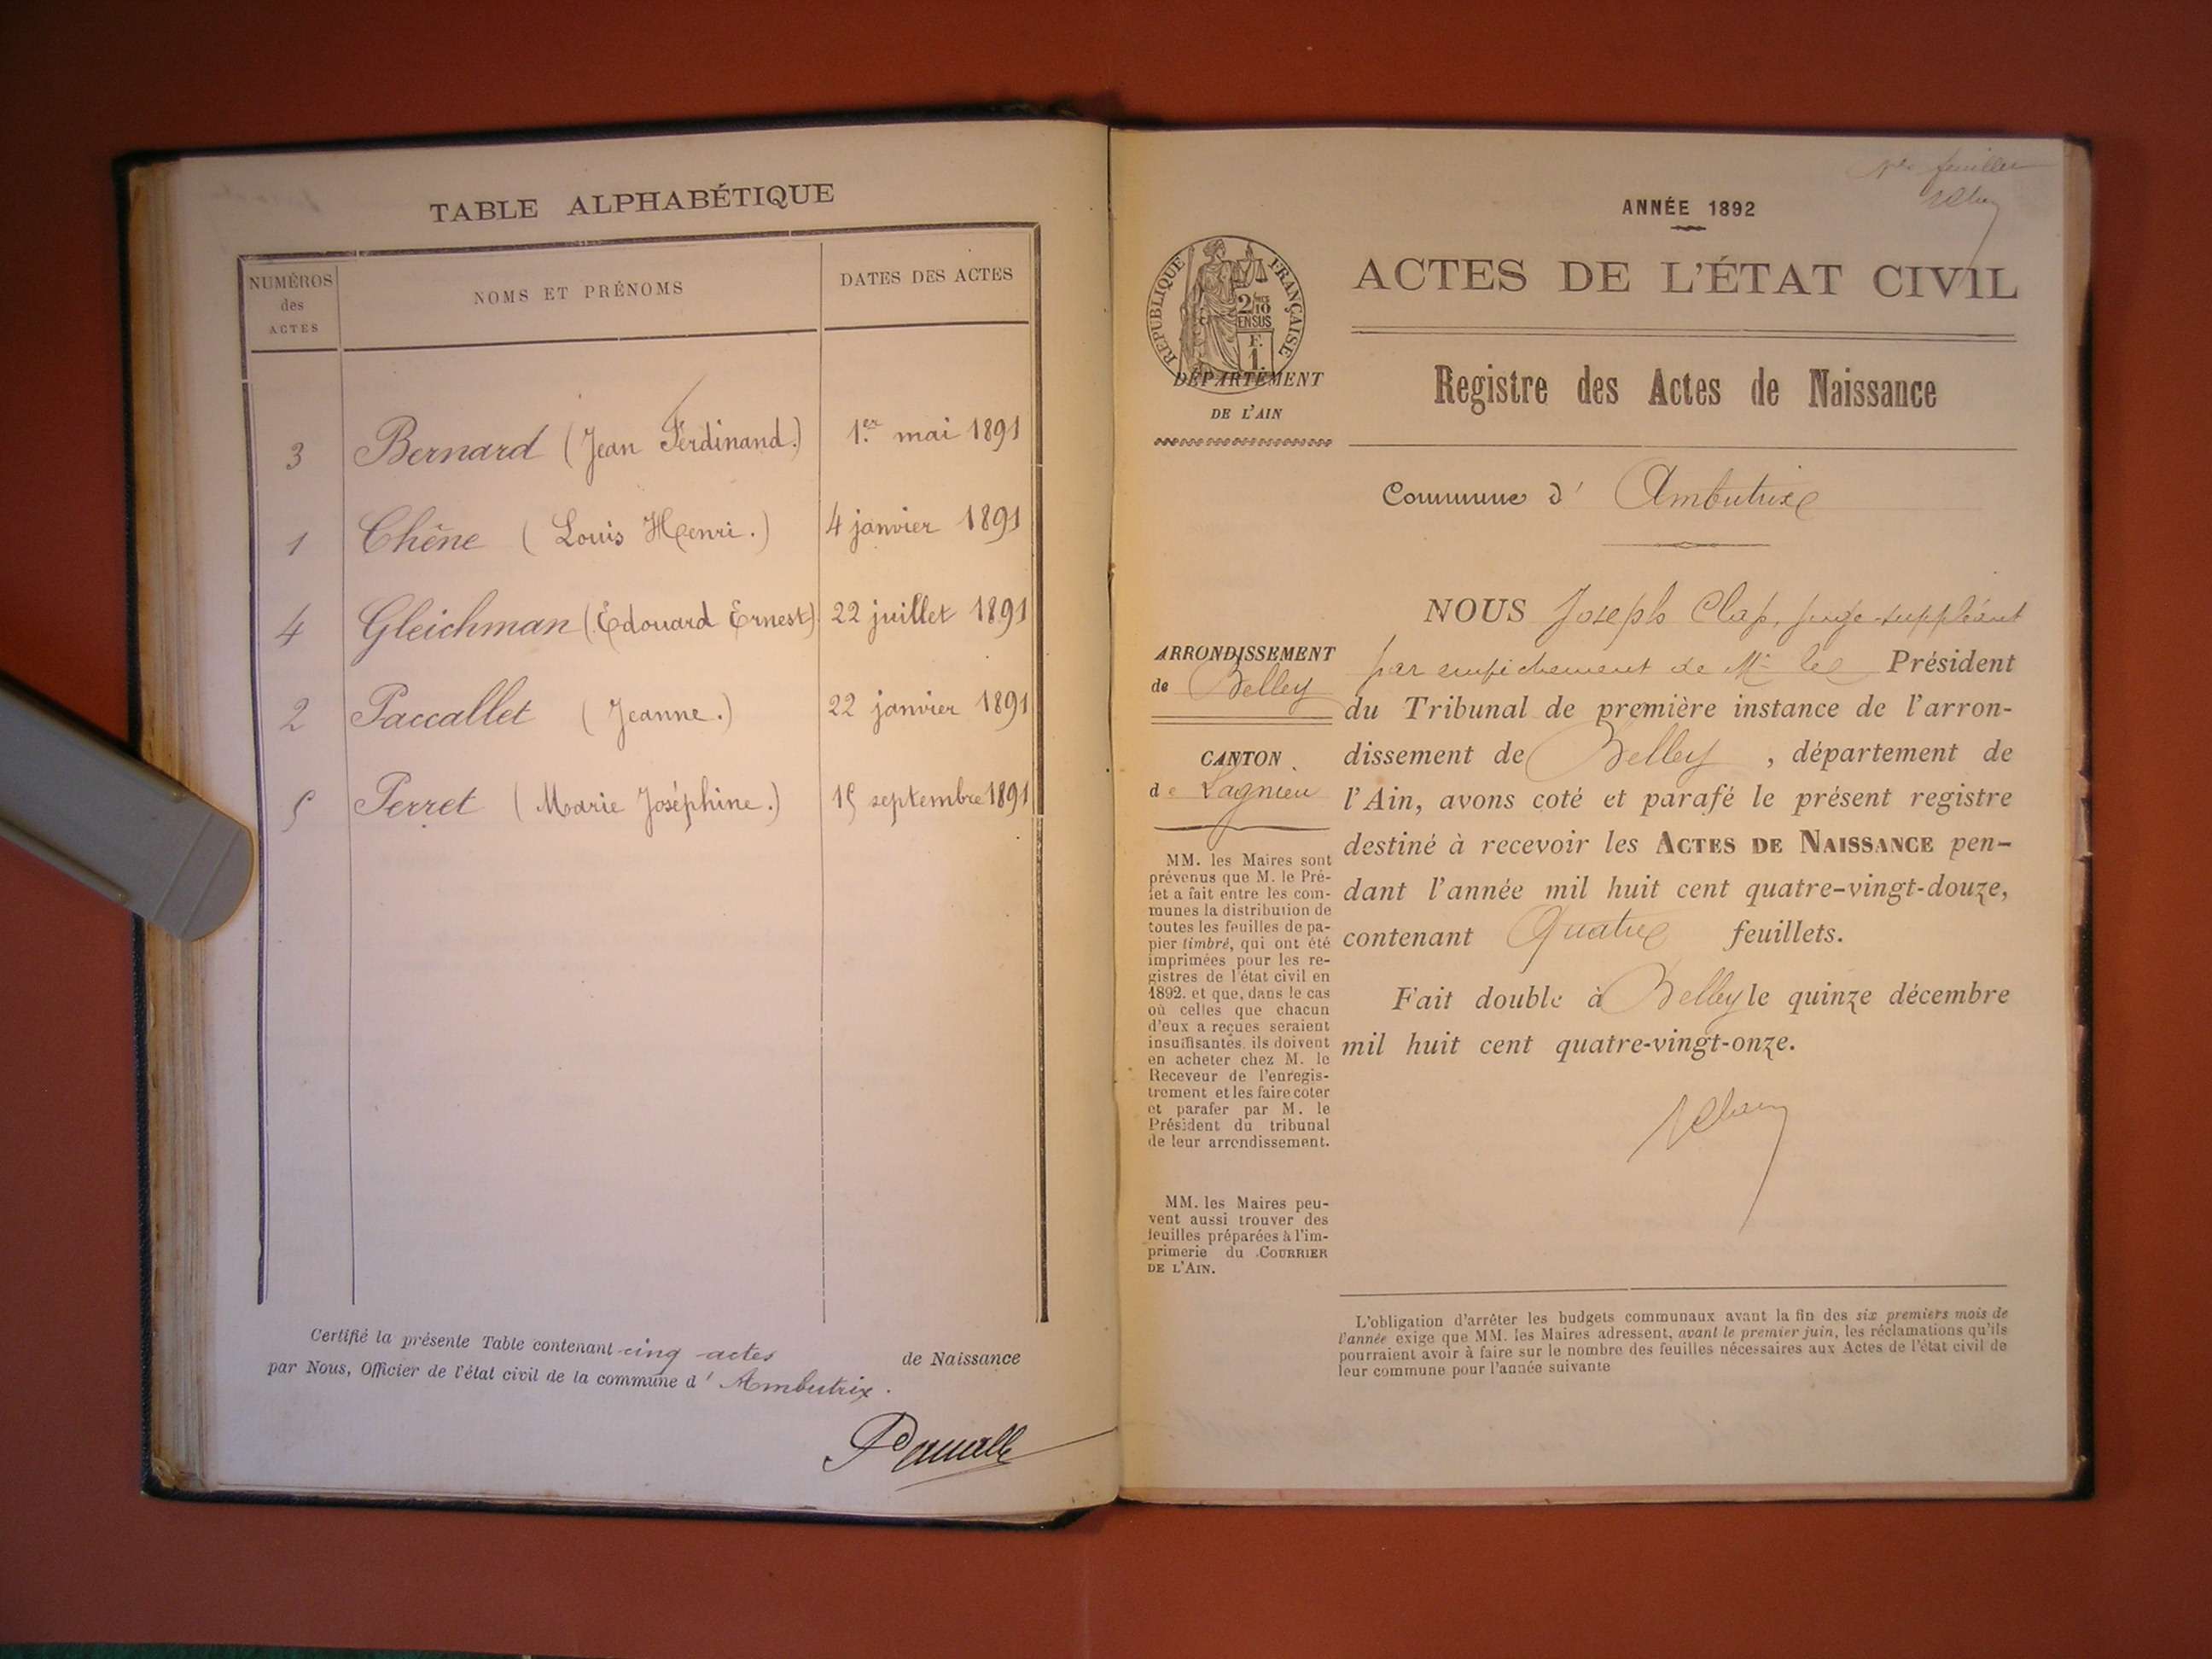 TABLE ALPHABÉTIQUE
NUMÉROS
des
ACTES
NOMS ET PRÉNOMS
DATES DES ACTES
3 Bernard (Jean Ferdinand.) 1er mai 1891
1 Chêne (Louis Henri.) 4 janvier 1891
4 Gleichman (Edouard Ernest) 22 juillet 1891
2 Paccallet (Jeanne.) 22 janvier 1891
5 Perret (Marie Joséphine.) 15 septembre 1891
Certifié la présente Table contenant cinq actes de Naissance
par Nous, Officier de l'état civil de la commune d' Ambutrix.
feuillet
ANNÉE 1892
RÉPUBLIQUE FRANÇAISE
2/10
EN SUS
F.
1.
ACTES DE L'ÉTAT CIVIL
Registre des Actes de Naissance
DÉPARTEMENT
DE L'AIN
Commune d' Ambutrix
ARRONDISSEMENT
de Belley
CANTON
de Lagnieu
MM. les Maires sont
prévenus que M. le Pré-
fet a fait entre les com-
munes la distribution de
toutes les feuilles de pa-
pier timbré, qui ont été
imprimées pour les re-
gistres de l'état civil en
1892. et que, dans le cas
où celles que chacun
d'eux a reçues seraient
insuffisantes, ils doivent
en acheter chez M. le
Receveur de l'enregis-
trement et les faire coter
et parafer par M. le
Président du tribunal
de leur arrondissement.
MM. les Maires peu-
vent aussi trouver des
feuilles préparées à l'im-
primerie du COURRIER
DE L'AIN.
NOUS Joseph Clap, juge-suppléant
par empêchement de Mr le Président
du Tribunal de première instance de l'arron-
dissement de Belley , département de
l'Ain, avons coté et parafé le présent registre
destiné à recevoir les ACTES DE NAISSANCE pen-
dant l'année mil huit cent quatre-vingt-douze,
contenant Quatre feuillets.
Fait double à Belley le quinze décembre
mil huit cent quatre-vingt-onze.
L'obligation d'arrêter les budgets communaux avant la fin des six premiers mois de
l'année exige que MM. les Maires adressent, avant le premier juin, les réclamations qu'ils
pourraient avoir à faire sur le nombre des feuilles nécessaires aux Actes de l'état civil de
leur commune pour l'année suivante